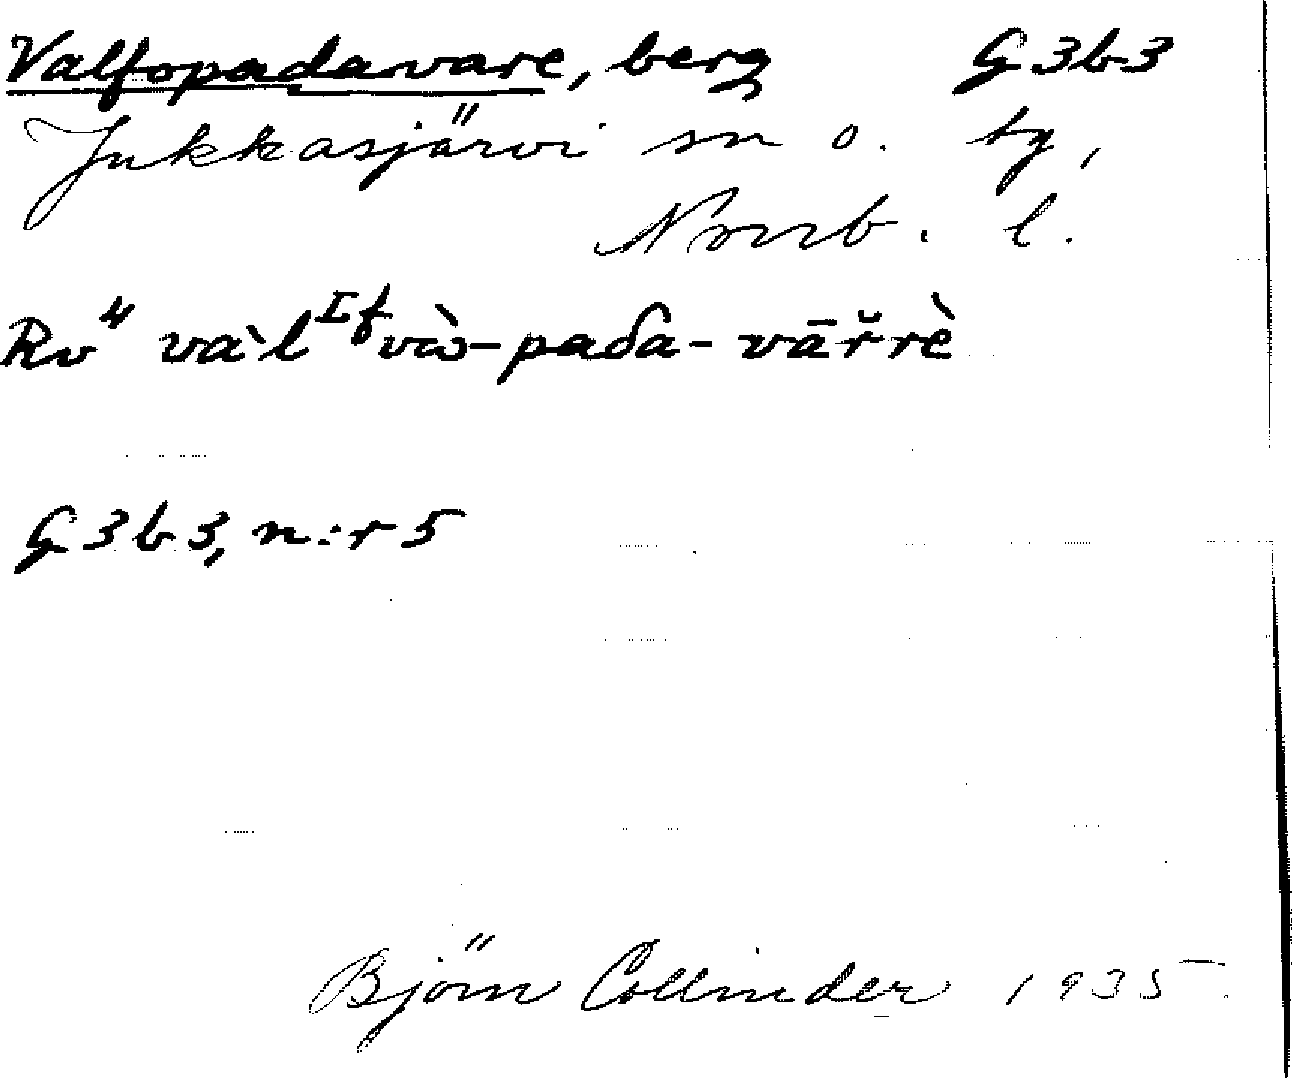 Valfopadavare, berg G3b3
Jukkasjärvi sn o. tg,
Norrb. l.
Rv⁴ và'l ᴵᶠvὼ-paδa-vāřrè
G3b3, n:r 5
Björn Collinder 1935